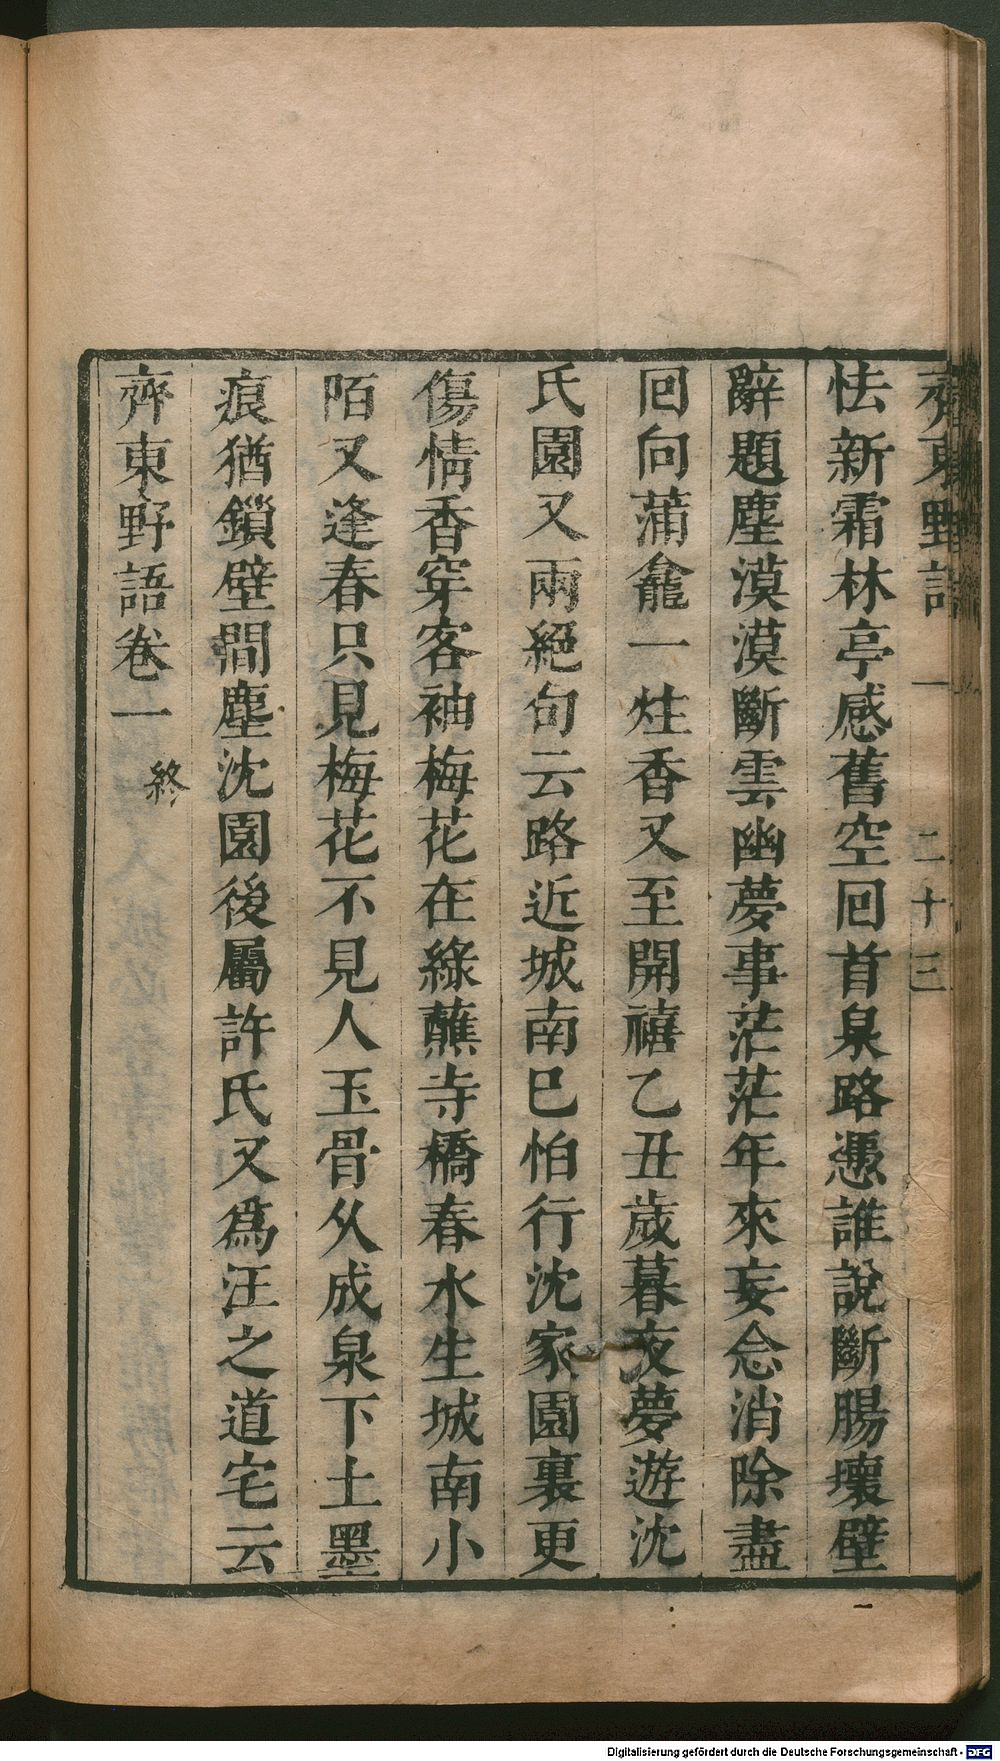 齊東野語 一 二十三
怯新霜林亭感舊空回首泉路憑誰說斷腸壞壁
辭題塵漠漠斷雲幽夢事茫茫年來妄念消除盡
回向蒲龕一炷香又至開禧乙丑歲暮夜夢遊沈
氏園又兩絕句云路近城南巳怕行沈家園裏更
傷情香穿客袖梅花在綠蘸寺橋春水生城南小
陌又逢春只見梅花不見人玉骨乆成泉下土墨
痕猶鎖壁間塵沈園後屬許氏又爲汪之道宅云
齊東野語卷一 終
Digitalisierung gefördert durch die Deutsche Forschungsgemeinschaft - DFG